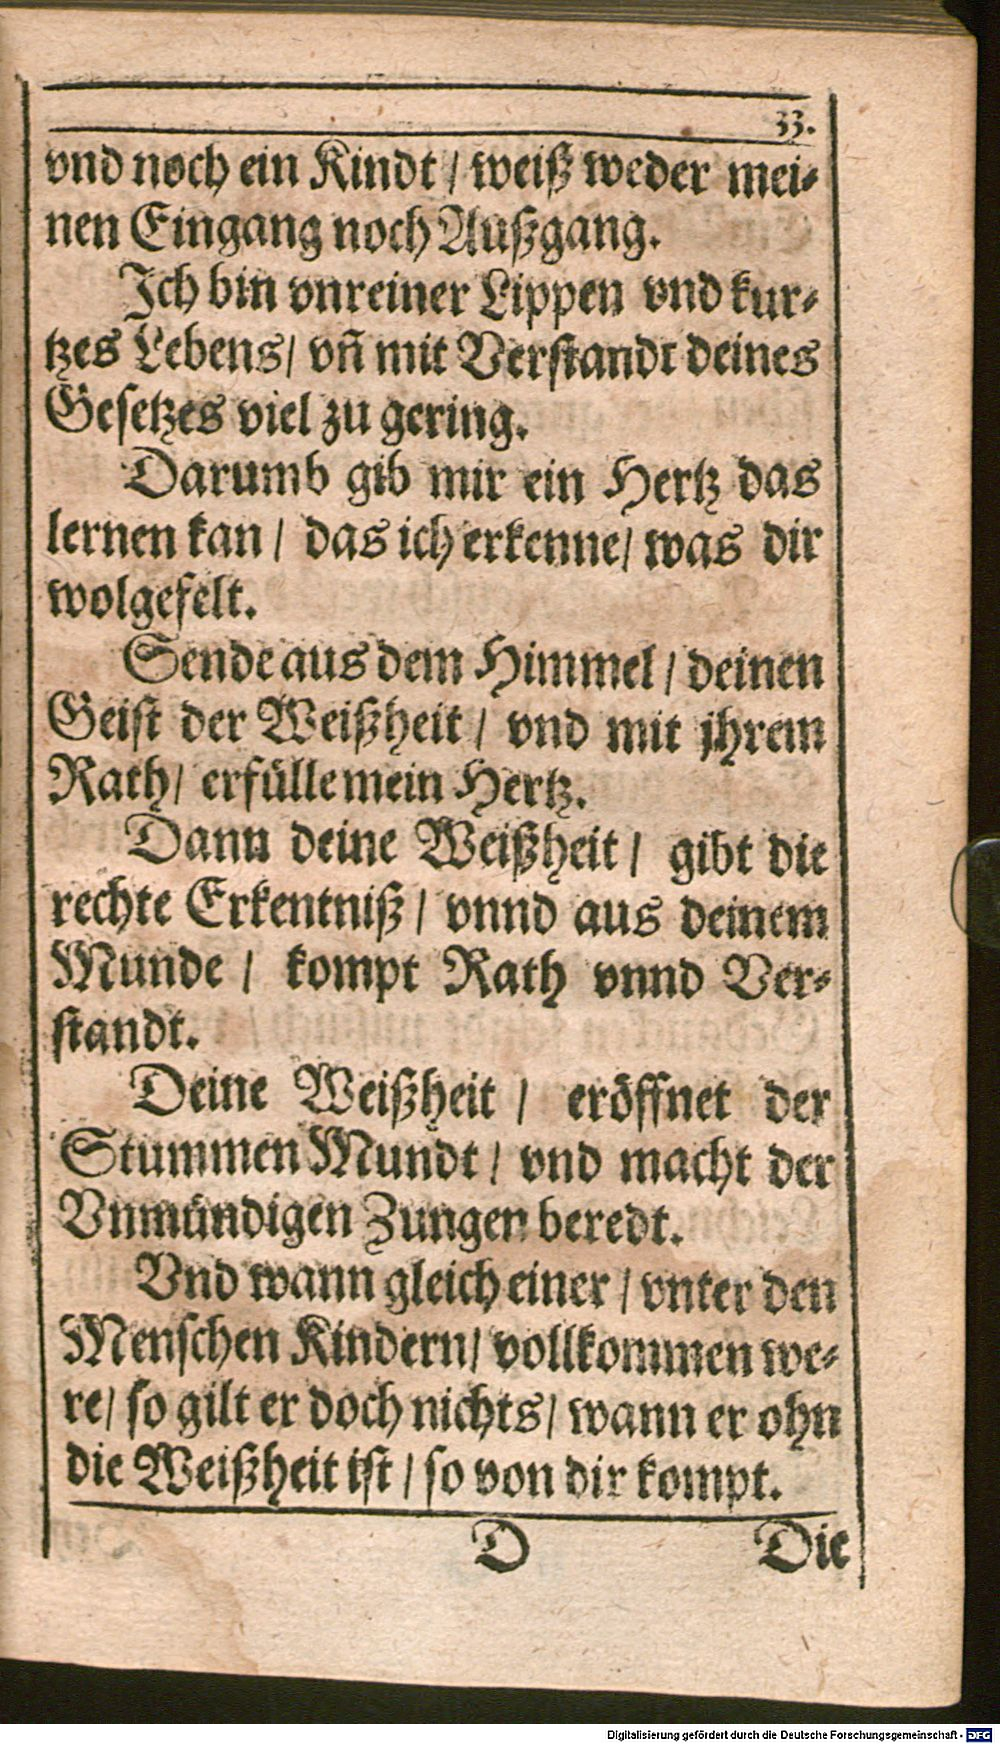 33.
vnd noch ein Kindt / weiß weder mei-
nen Eingang noch Außgang.
Ich bin vnreiner Lippen vnd kur-
tzes Lebens / vñ mit Verstandt deines
Gesetzes viel zu gering.
Darumb gib mir ein Hertz das
lernen kan / das ich erkenne / was dir
wolgefelt.
Sende aus dem Himmel / deinen
Geist der Weißheit / vnd mit jhrem
Rath / erfülle mein Hertz.
Dann deine Weißheit / gibt die
rechte Erkentniß / vnnd aus deinem
Munde / kompt Rath vnnd Ver-
standt.
Deine Weißheit / eröffnet der
Stummen Mundt / vnd macht der
Vnmündigen Zungen beredt.
Vnd wann gleich einer / vnter den
Menschen Kindern / vollkommen we-
re / so gilt er doch nichts / wann er ohn
die Weißheit ist / so von dir kompt.
D Die
Digitalisierung gefördert durch die Deutsche Forschungsgemeinschaft - DFG